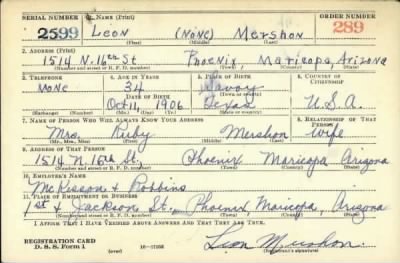 SERIAL NUMBER 1. NAME (Print) ORDER NUMBER
2599 Leon (NONE) Mershon 289
(First) (Middle) (Last)
2. ADDRESS (Print)
1514 N. 16th St Phoenix, Maricopa, Arizona
(Number and street or R. F. D. number) (Town) (County) (State)
3. TELEPHONE 4. AGE IN YEARS 5. PLACE OF BIRTH 6. COUNTRY OF CITIZENSHIP
NONE 34 Savoy
DATE OF BIRTH (Town or county)
Oct 11, 1906 Texas U.S.A.
(Exchange) (Number) (Mo.) (Day) (Yr.) (State or country)
7. NAME OF PERSON WHO WILL ALWAYS KNOW YOUR ADDRESS 8. RELATIONSHIP OF THAT PERSON
Mrs. Ruby Mershon Wife
(Mr., Mrs., Miss) (First) (Middle) (Last)
9. ADDRESS OF THAT PERSON
1514 N. 16th St. Phoenix Maricopa Arizona
(Number and street or R. F. D. number) (Town) (County) (State)
10. EMPLOYER'S NAME
McKesson & Robbins
11. PLACE OF EMPLOYMENT OR BUSINESS
1st & Jackson St. Phoenix, Maricopa, Arizona
(Number and street or R. F. D. number) (Town) (County) (State)
I AFFIRM THAT I HAVE VERIFIED ABOVE ANSWERS AND THAT THEY ARE TRUE.
REGISTRATION CARD
D. S. S. Form 1 (over) Leon Mershon
(Registrant's signature)